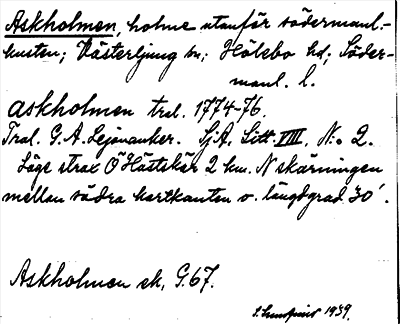 Askholmen, holme utanför södermanl.-
kusten; Västerljung sn; Hölebo hd; Söder-
manl. l.
askholmen trol. 1774-76.
Tral. G. A. Lejonanker. SjA. Litt VIII. N:o 2.
Läge strax Ö Hästskär 2 km. N skärningen
mellan södra kartkanten o. längdgrad 30'.
Askholmen ek, G.67.
S. 1939.